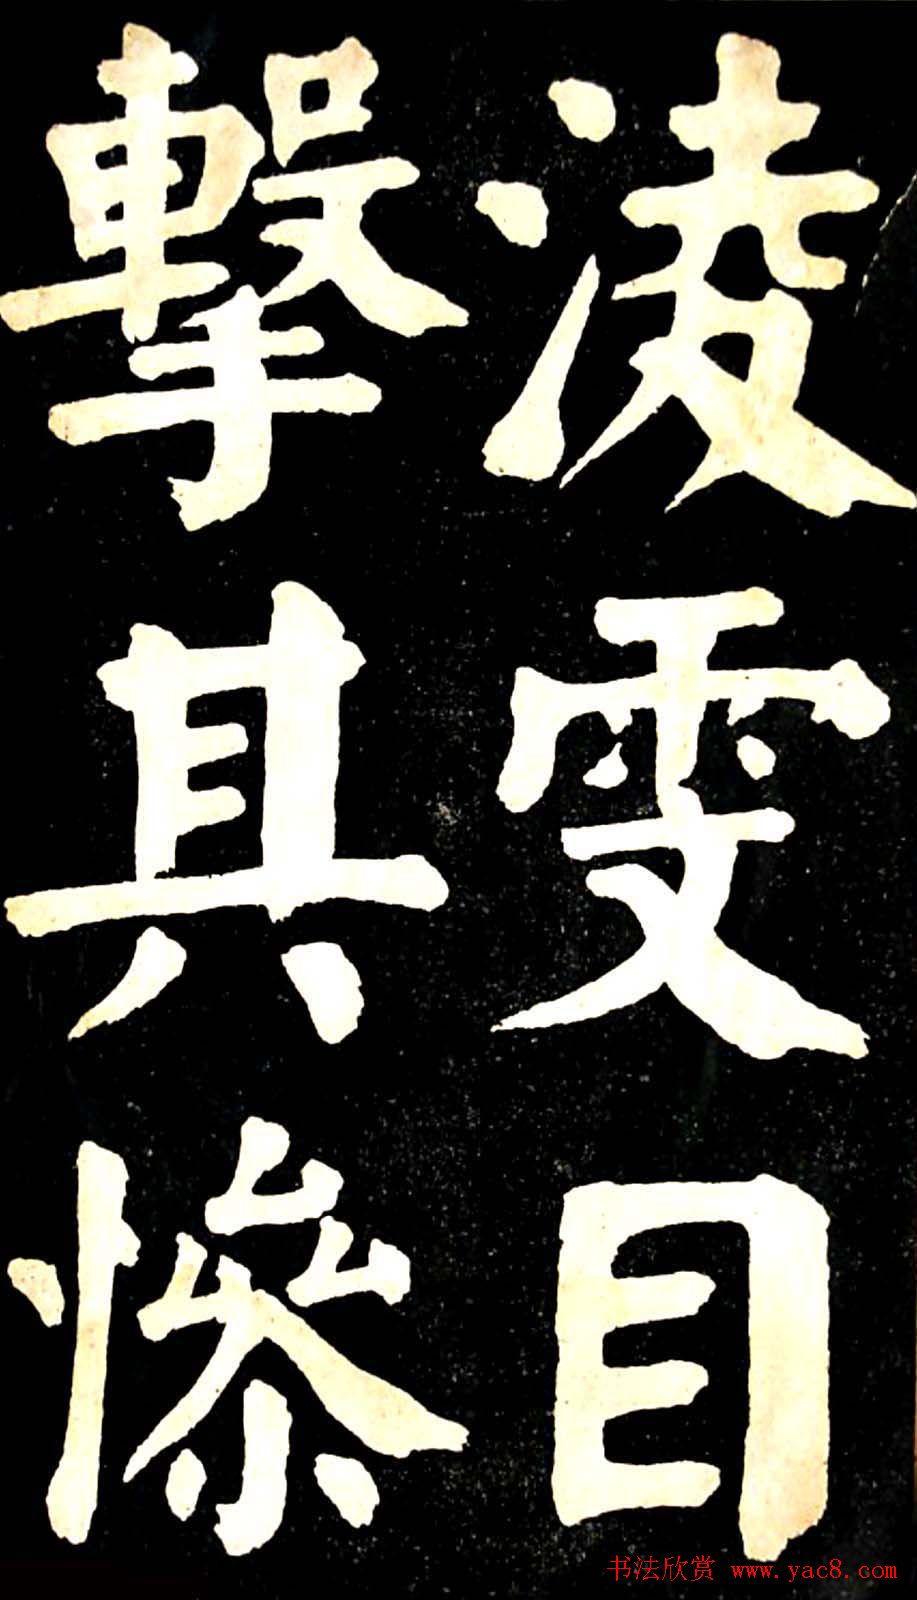 淩雯目
撃其慘
书法欣赏 www.yac8.com